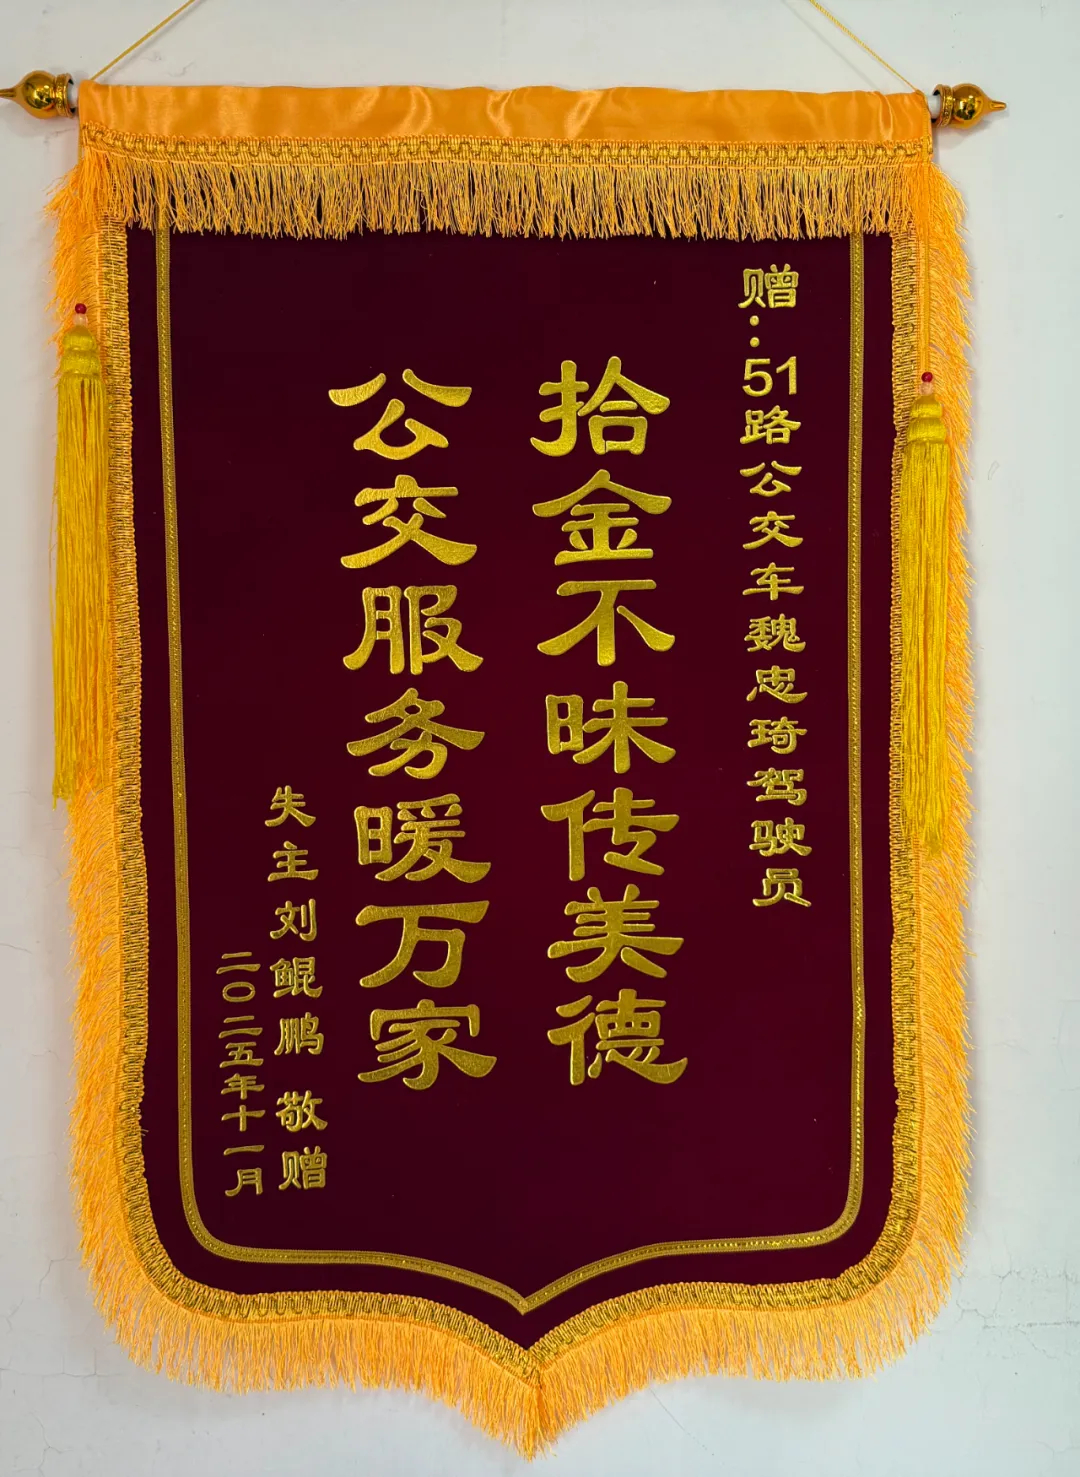 赠：51路公交车魏忠琦驾驶员
拾金不昧传美德
公交服务暖万家
失主刘鲲鹏 敬赠
二〇二五年十一月